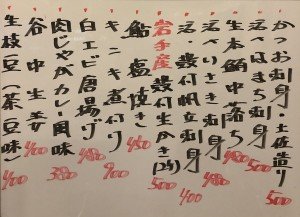 かつお刺身・土佐造り 500
活〆はまち刺身 500
生本鮪中落ち 450
活〆さざえ刺身 480
活〆殻付帆立刺身 400
岩手産殻付生かき(2ヶ) 500
鮎塩焼き 450
キンキ煮付け 900
白エビ唐揚げ 480
肉じゃがカレー風味 380
谷中生姜 400
生枝豆(茶豆味) 400